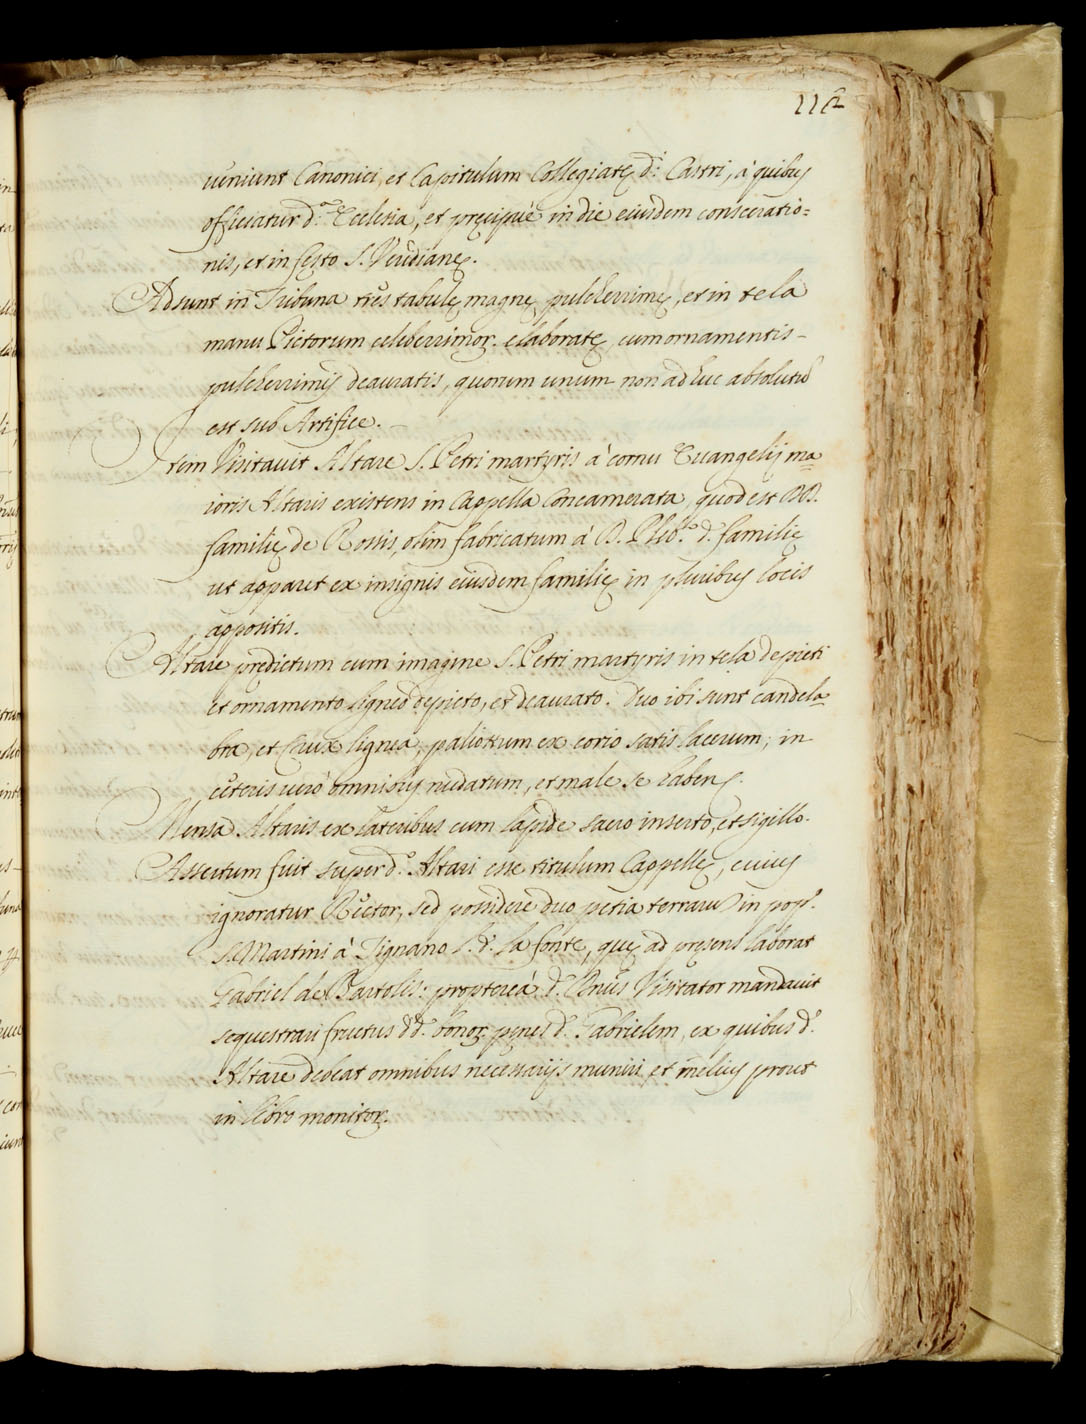 112
ueniunt Canonici, et Capitulum Collegiatę d.i Castri, à quibus
officiatur d.a Ecclesia, et pręcipuè in die eiusdem consecratio=
nis, et in festo S. Verdianę.
Adsunt in Tribuna tres tabulę magnę pulcherrimę, et in tela
manu Pictorum celeberrimor. elaboratę, cum ornamentis-
pulcherrimis deauratis, quorum unum non ad huc absolutū
est sub Artifice.
Item Visitauit Altare S. Petri martyris à cornu Euangelij ma=
ioris Altaris existens in Cappella Concamerata, quod est DD.
familię de Rossis, olim fabricatum à D. d. familię
ut apparet ex insignis eiusdem familię in pluribus locis
appositis.
Altare prędictum cum imagine S. Petri martyris in tela depicti
et ornamento ligneo depicto, et deaurato. Duo ibi sunt candela=
bra, et Crux lignea, paliottum ex corio satis lacerum, in
cęteris uerò omnibus nudatum, et male se habens.
Mensa Altaris ex lateribus cum lapide sacro inserto, et sigillo.
Assertum fuit super d.o Altari esse titulum Cappellę, cuius
ignoratur Rector, sed possidere duo petia terrarū in pop.o
S. Martini à Tignano l. d. la fonte, quę ad pręsens laborat
Fabriel de Bartolis: propterea d. Dnūs Visitator mandauit
sequestrari fructus dd. bonor. penes d. Fabrielem, ex quibus d.
Altare debeat omnibus necessarijs muniri et melius prout
in libro monitor.